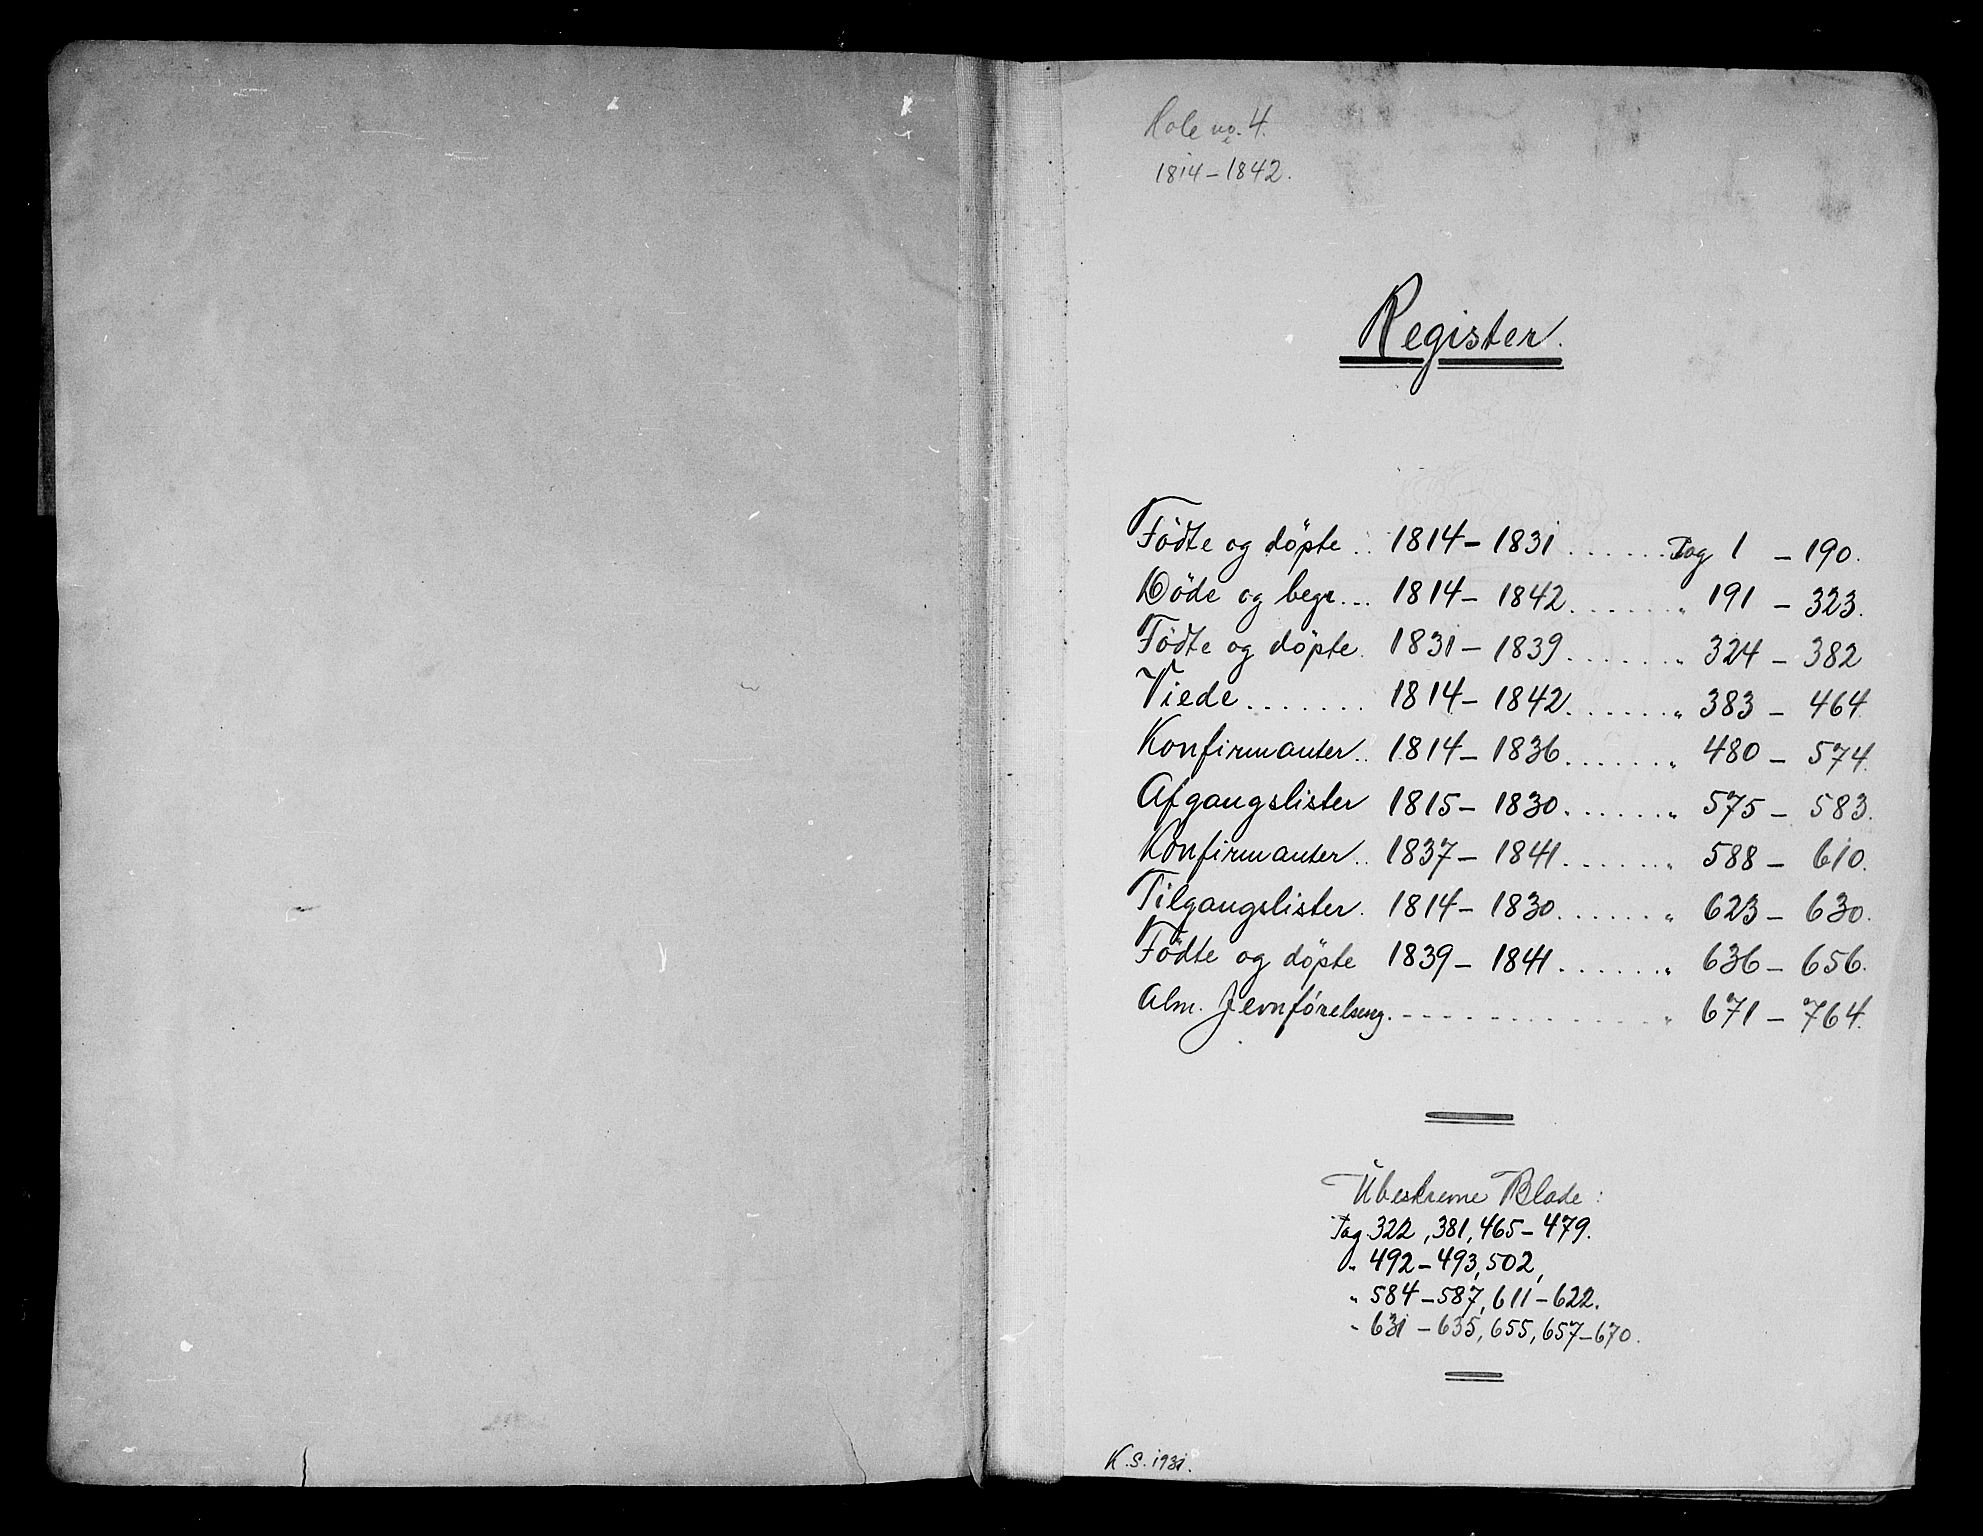 Hole no. 4.
1814–1842.
Register.
Födte og döpte .. 1814 – 1831 ....... Pag 1 – 190.
Döde og begr... 1814 – 1842 ....... " 191 – 323.
Födte og döpte. 1831 – 1839 ....... " 324 – 382
Viede ....... 1814 – 1842 ....... " 383 – 464
Konfirmanter .. 1814 – 1836 ....... " 480 – 574.
Afgangslister 1815 – 1830 ....... " 575 – 583.
Konfirmanter .. 1837 – 1841 ....... " 588 – 610.
Tilgangslister. 1814 – 1830 ....... " 623 – 630.
Födte og döpte 1839 – 1841 ....... " 636 – 656.
Alm. Jevnförelseng. ............ " 671 – 764.
Ubeskrevne Blade:
Pag. 322, 381, 465 – 479.
" 492 – 493, 502,
" 584 – 587, 611 – 622.
" 631 – 635, 655, 657 – 670.
K.S. 1931.